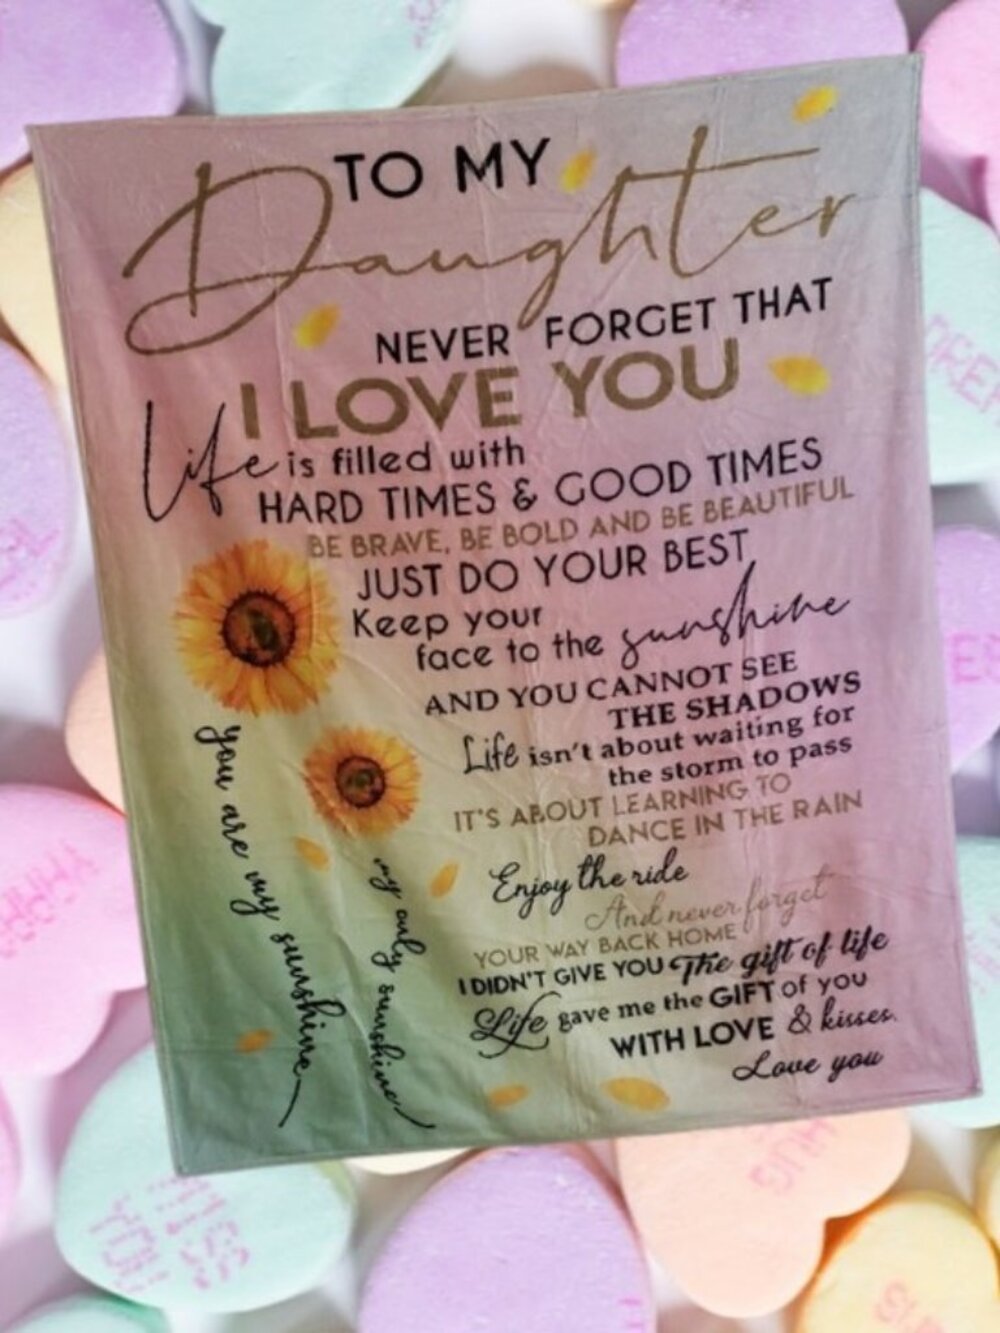 TO MY
Daughter
NEVER FORGET THAT
I LOVE YOU
Life is filled with
HARD TIMES & GOOD TIMES
BE BRAVE, BE BOLD AND BE BEAUTIFUL
JUST DO YOUR BEST
Keep your
face to the sunshine
AND YOU CANNOT SEE
THE SHADOWS
Life isn't about waiting for
the storm to pass
IT'S ABOUT LEARNING TO
DANCE IN THE RAIN
Enjoy the ride
And never forget
YOUR WAY BACK HOME
I DIDN'T GIVE YOU The gift of life
Life gave me the GIFT of you
WITH LOVE & kisses.
Love you
You are my sunshine
my only sunshine